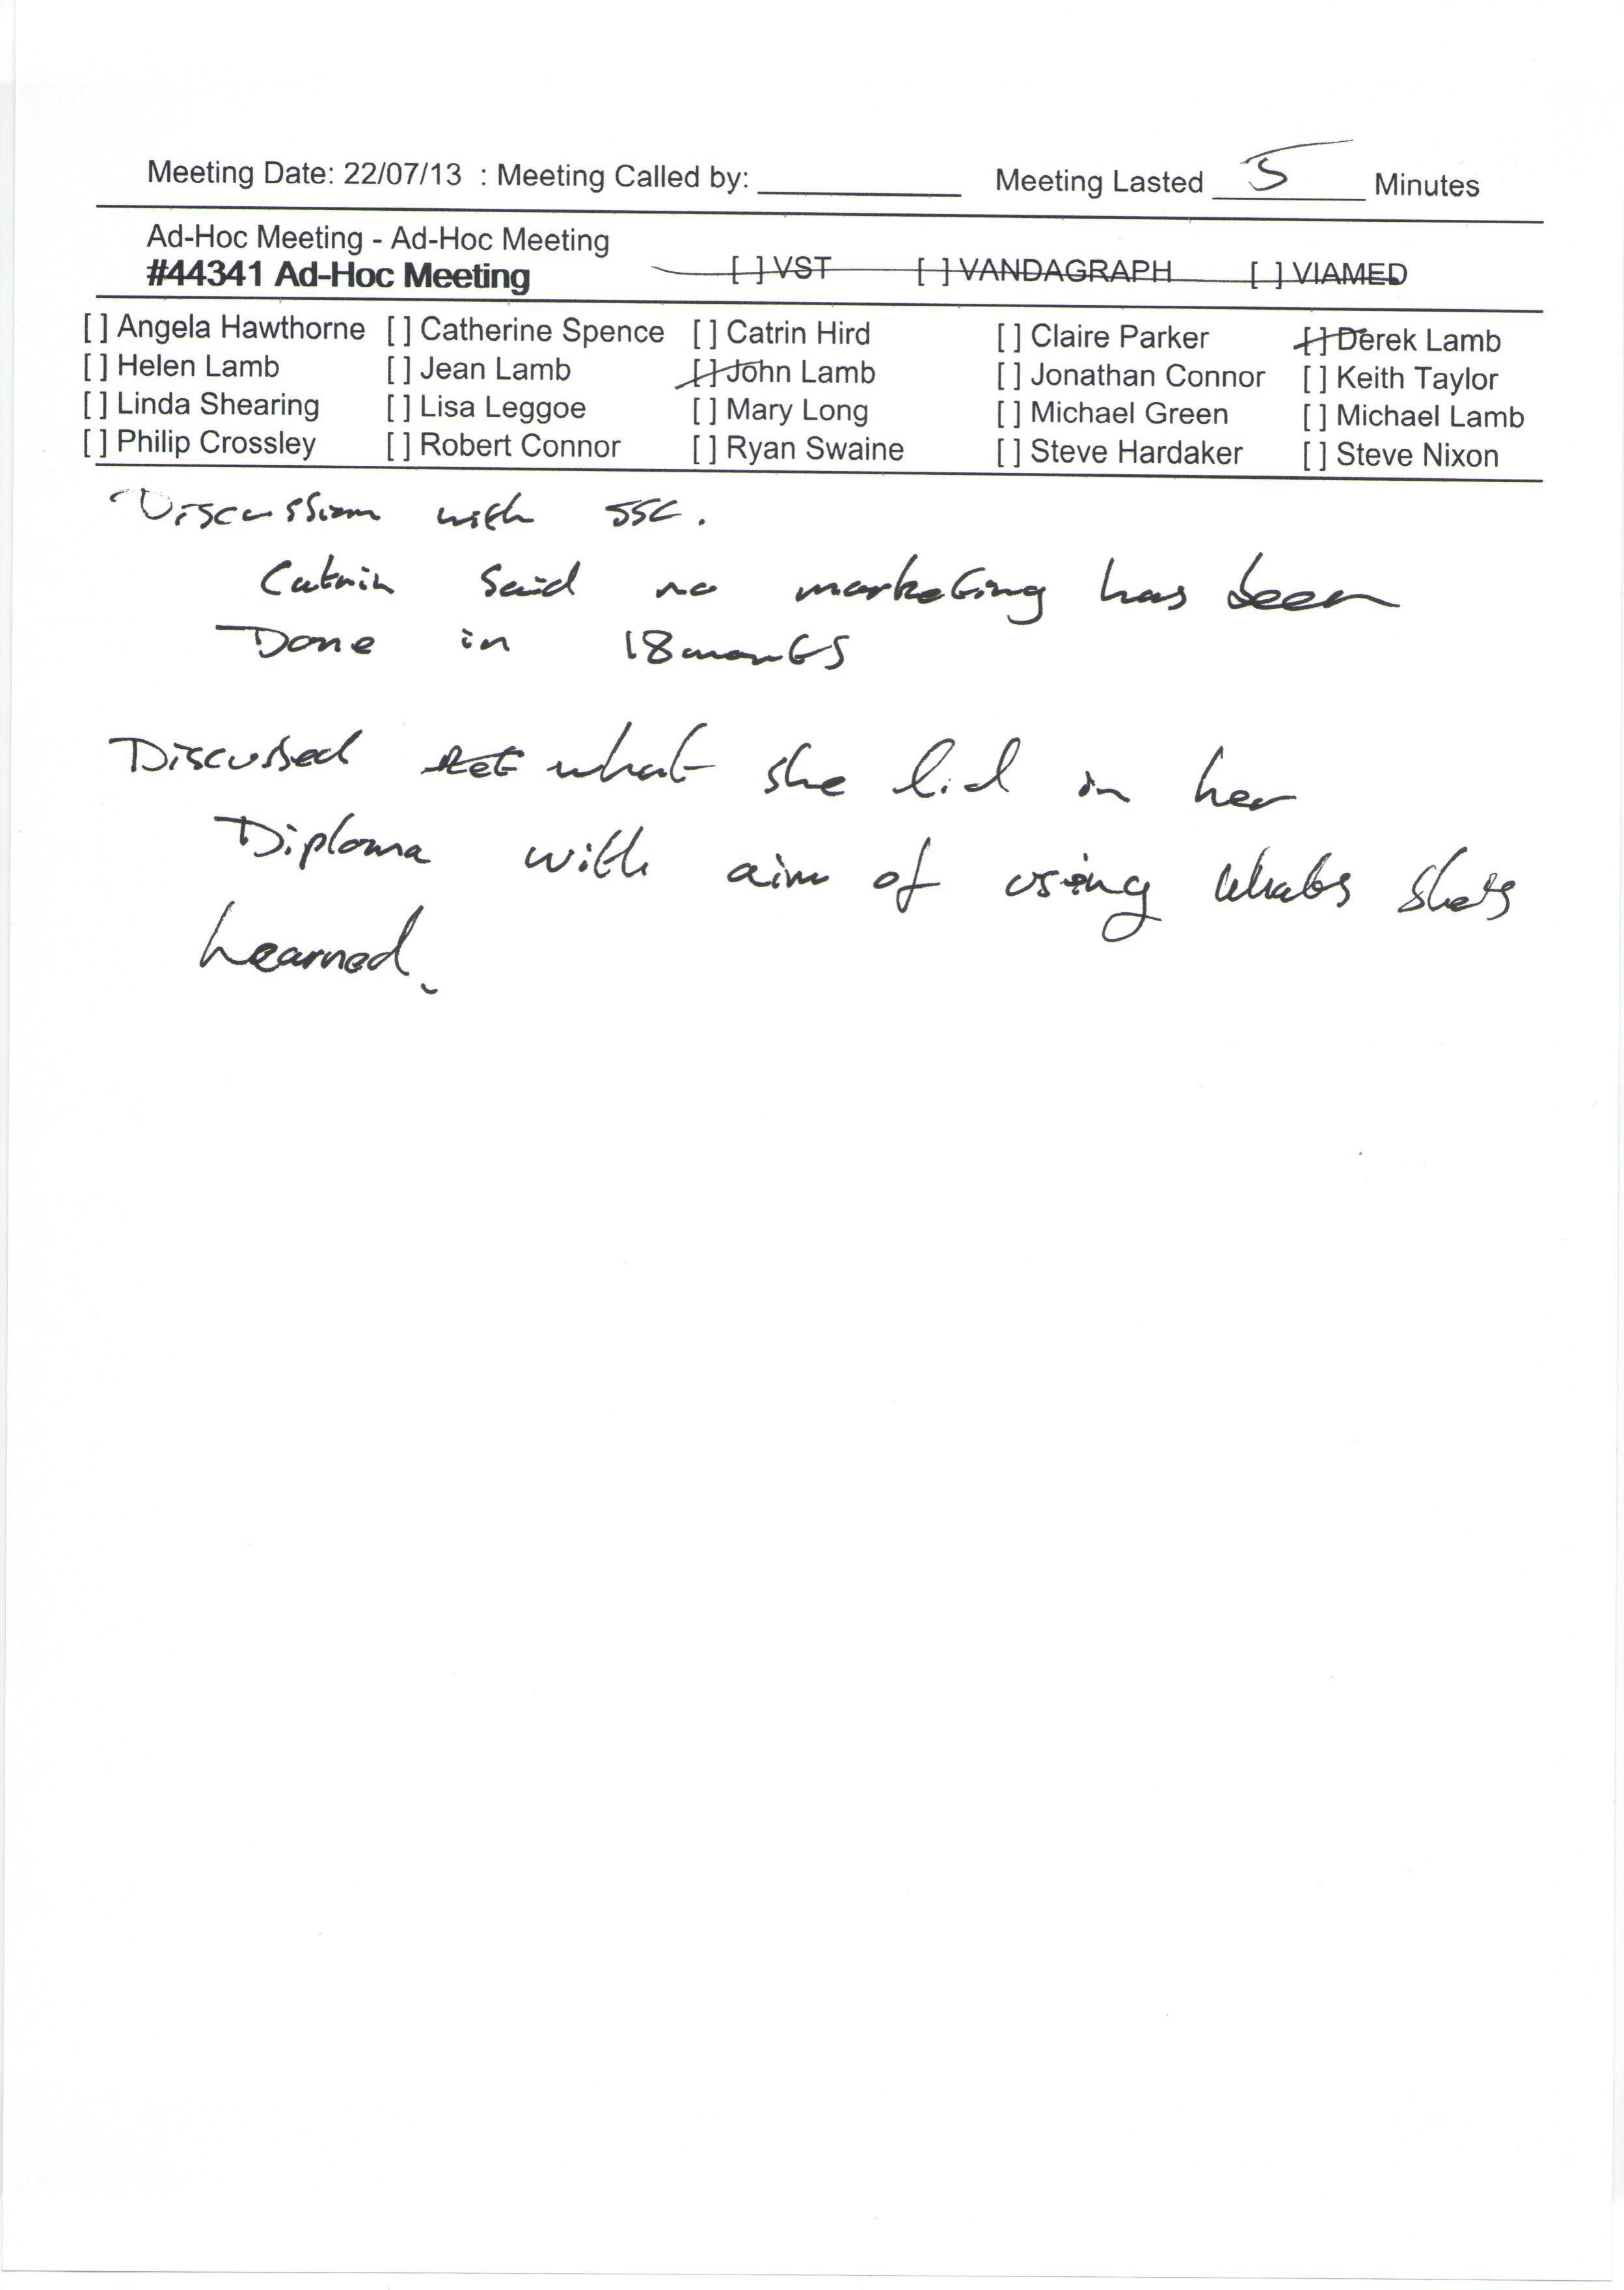 Meeting Date: 22/07/13 : Meeting Called by: ____________ Meeting Lasted 5 Minutes
Ad-Hoc Meeting - Ad-Hoc Meeting
#44341 Ad-Hoc Meeting [ ] VST [ ] VANDAGRAPH [ ] VIAMED
[ ] Angela Hawthorne [ ] Catherine Spence [ ] Catrin Hird [ ] Claire Parker [ ] Derek Lamb
[ ] Helen Lamb [ ] Jean Lamb [ ] John Lamb [ ] Jonathan Connor [ ] Keith Taylor
[ ] Linda Shearing [ ] Lisa Leggoe [ ] Mary Long [ ] Michael Green [ ] Michael Lamb
[ ] Philip Crossley [ ] Robert Connor [ ] Ryan Swaine [ ] Steve Hardaker [ ] Steve Nixon
Discussion with SSC.
Catrin said no marketing has been
Done in 18 months
Discussed what she did in her
Diploma with aim of using whats shes
Learned.